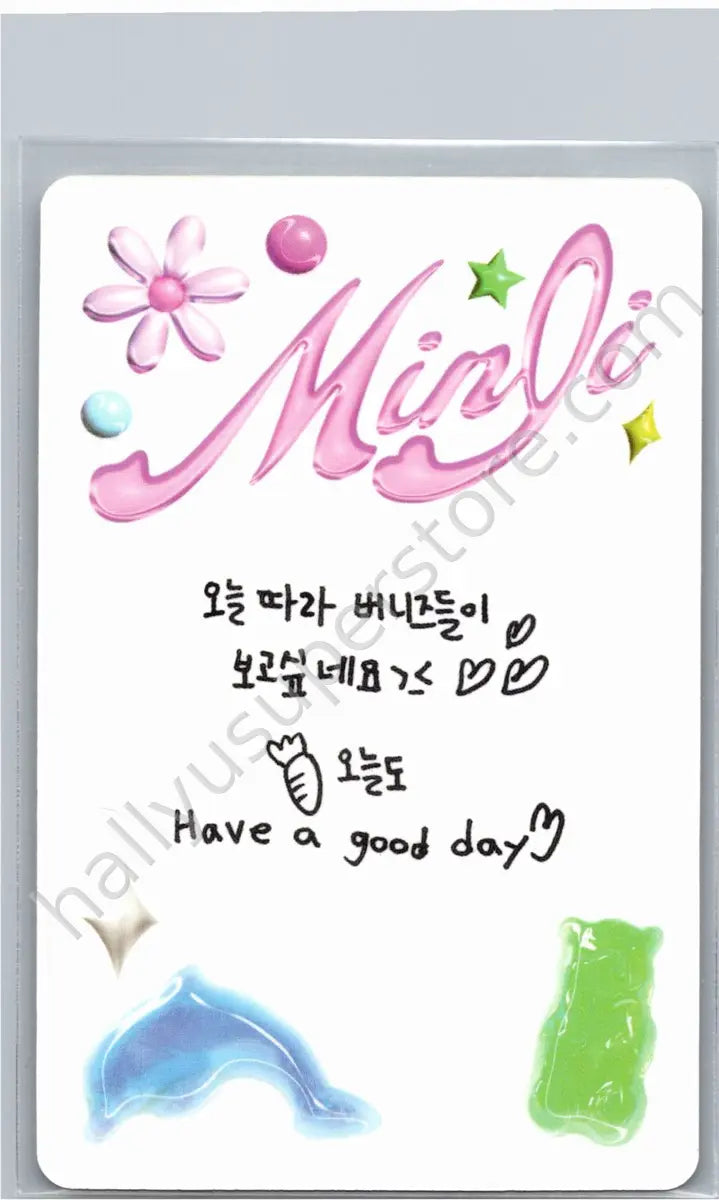 Minji
오늘 따라 버니즈들이
보고싶네요 ><
오늘도
Have a good day
hallyusuperstore.com